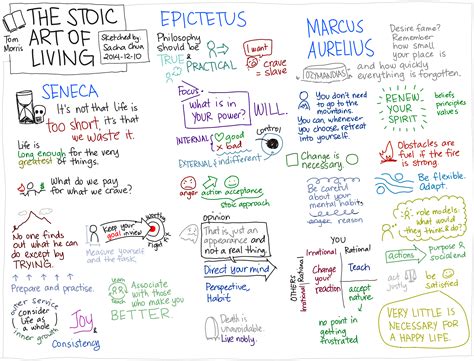 THE STOIC
ART OF
LIVING
Tom
Morris
Sketched by
Sacha Chua
2014-12-10
SENECA
It's not that life is
too short, it's that
we waste it.
Life is
long enough for the very
greatest of things.
What do we pay
for what we crave?
No one finds
out what he can
do except by
TRYING.
Prepare and practise.
keep your
goal in view
worthy
right fit
Measure yourself
and the task.
outer service
consider
life as
a whole
inner growth
Joy
&
Consistency
Associate
with those
who make you
BETTER.
EPICTETUS
Philosophy
should be
TRUE
&
PRACTICAL
I want
crave =
slave
Focus:
what is in
your power?
WILL.
INTERNAL
good
x bad
control
EXTERNAL
indifferent
anger
action
acceptance
stoic approach
opinion
That is just an
appearance and
not a real thing.
Direct your mind
Perspective,
Habit
Death is
unavoidable.
Live nobly.
MARCUS
AURELIUS
Desire fame?
Remember
how small
your place is
and how quickly
everything is forgotten.
OZYMANDIAS
You don't need
to go to the
mountains.
You can, whenever
you choose,
retreat into
yourself.
RENEW
YOUR
SPIRIT
beliefs
principles
values
Change is
necessary.
Obstacles are
fuel if the fire
is strong.
Be flexible.
Adapt.
Be careful
about your
mental habits
environment
role models:
what would
they think & do?
YOU
Irrational
Rational
OTHERS
Rational
Irrational
Change
your
reaction
Teach
no point in
getting
frustrated
accept
actions
purpose &
social end
act
justly
be
satisfied
VERY LITTLE IS
NECESSARY FOR
A HAPPY LIFE.